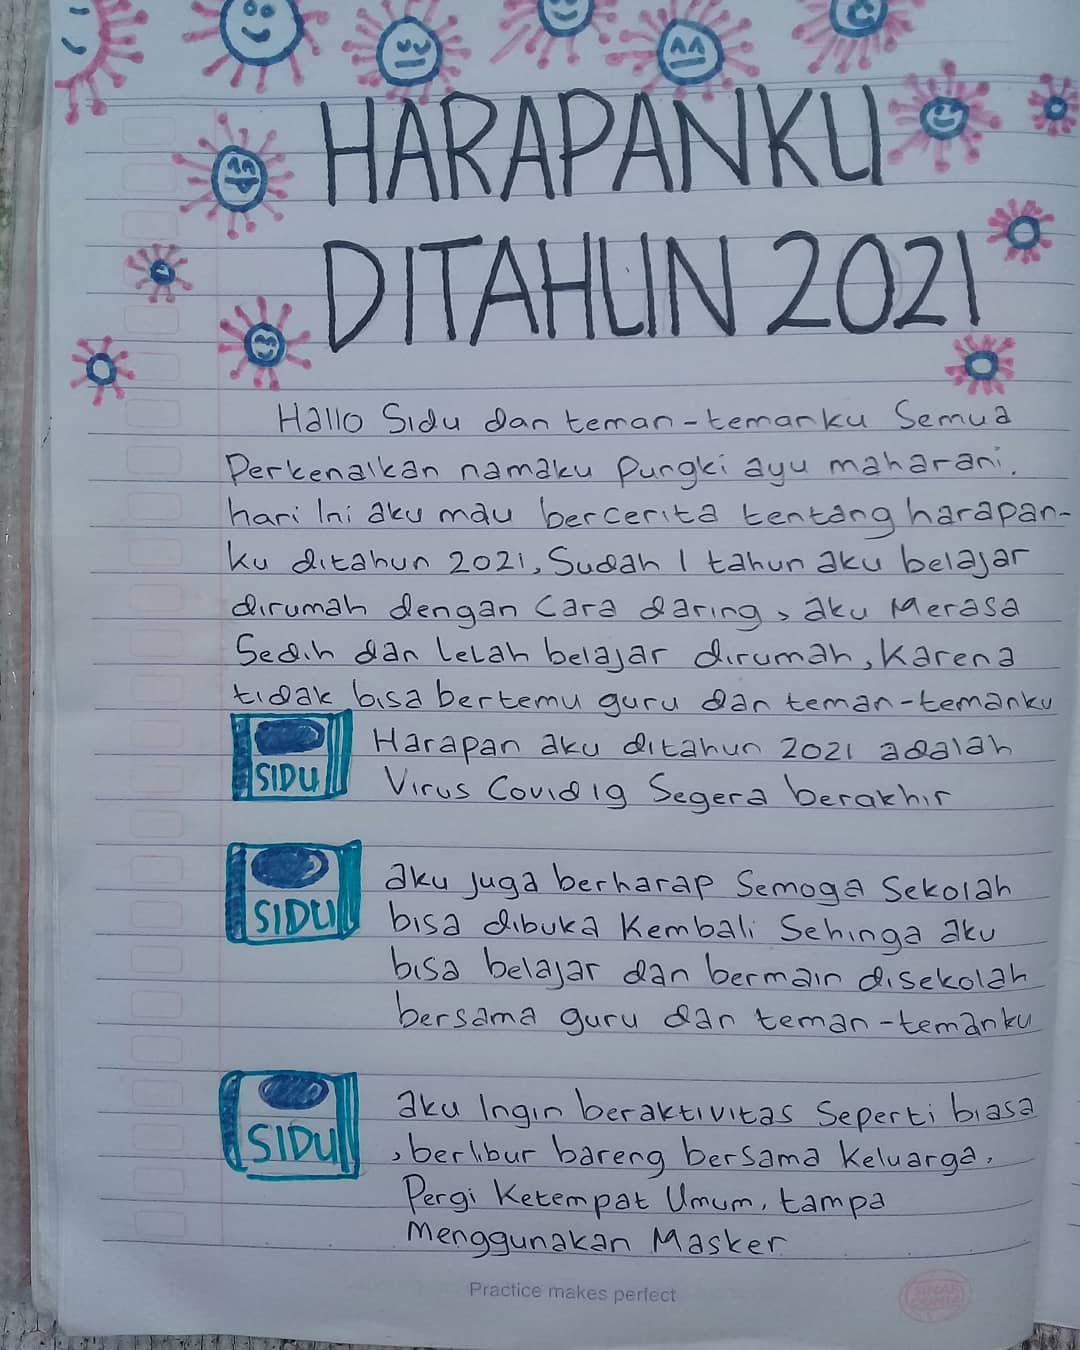 HARAPANKU
DITAHUN 2021
Hallo Sidu dan teman-temanku Semua
Perkenalkan namaku Pungki ayu maharani.
hari Ini aku mau bercerita tentang harapan-
ku ditahun 2021, Sudah 1 tahun aku belajar
dirumah dengan Cara daring, aku Merasa
Sedih dan Lelah belajar dirumah, Karena
tidak bisa bertemu guru dan teman-temanku
SIDU
Harapan aku ditahun 2021 adalah
Virus Covid 19 Segera berakhir
SIDU
aku Juga berharap Semoga Sekolah
bisa dibuka Kembali Sehinga aku
bisa belajar dan bermain disekolah
bersama guru dan teman-temanku
SIDU
aku Ingin beraktivitas Seperti biasa
, berlibur bareng bersama Keluarga,
Pergi Ketempat Umum, tampa
Menggunakan Masker
Practice makes perfect